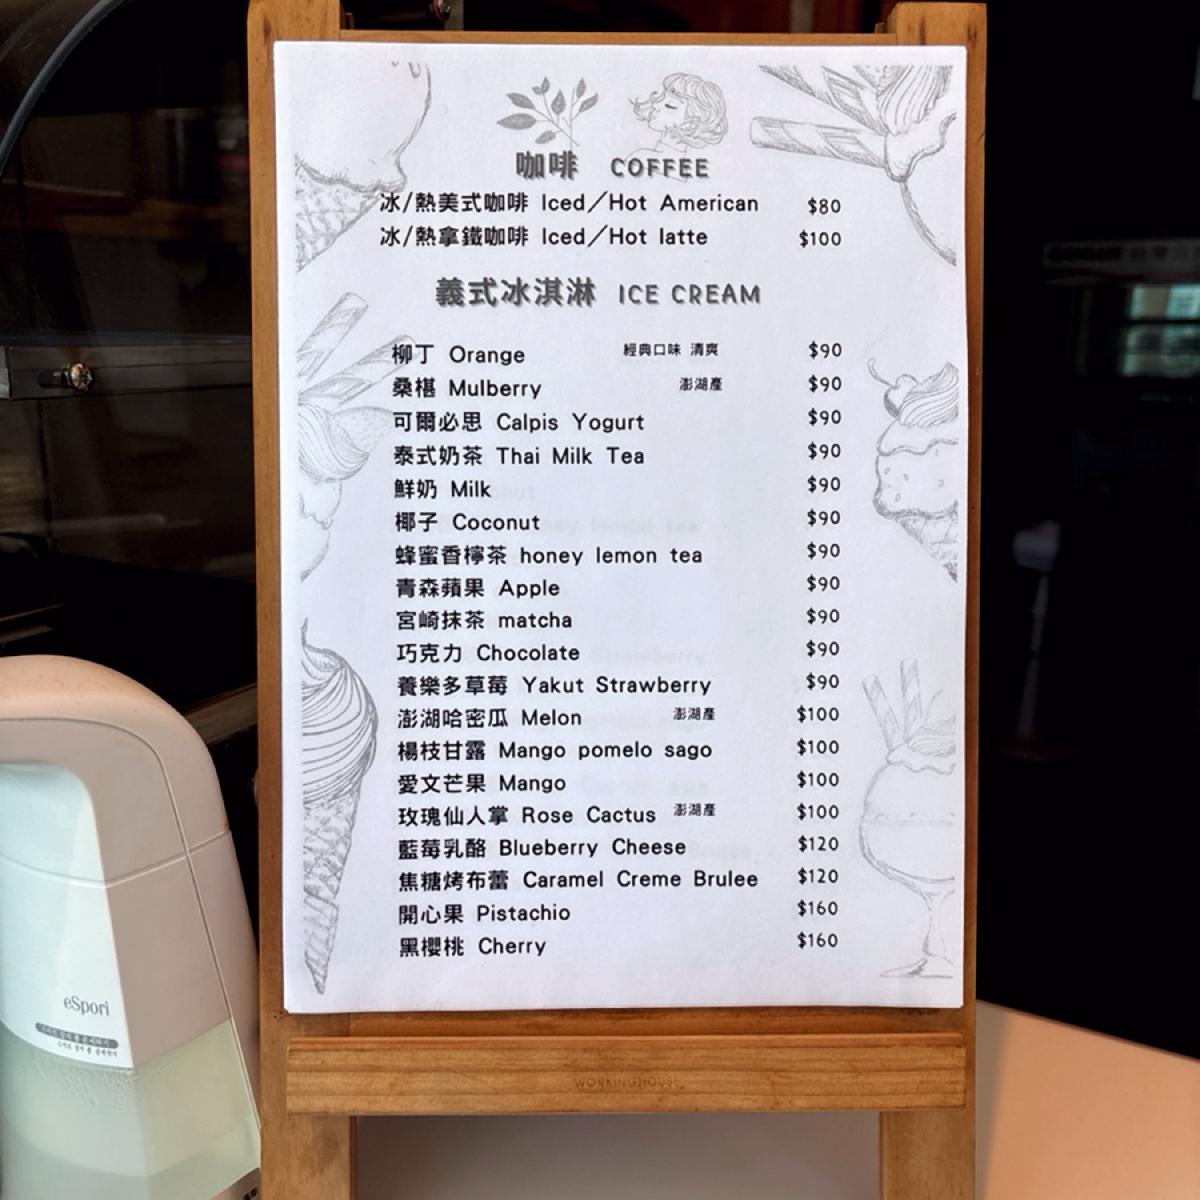 咖啡 COFFEE
冰/熱美式咖啡 Iced／Hot American $80
冰/熱拿鐵咖啡 Iced／Hot latte $100
義式冰淇淋 ICE CREAM
柳丁 Orange 經典口味 清爽 $90
桑椹 Mulberry 澎湖產 $90
可爾必思 Calpis Yogurt $90
泰式奶茶 Thai Milk Tea $90
鮮奶 Milk $90
椰子 Coconut $90
蜂蜜香檸茶 honey lemon tea $90
青森蘋果 Apple $90
宮崎抹茶 matcha $90
巧克力 Chocolate $90
養樂多草莓 Yakut Strawberry $90
澎湖哈密瓜 Melon 澎湖產 $100
楊枝甘露 Mango pomelo sago $100
愛文芒果 Mango $100
玫瑰仙人掌 Rose Cactus 澎湖產 $100
藍莓乳酪 Blueberry Cheese $120
焦糖烤布蕾 Caramel Creme Brulee $120
開心果 Pistachio $160
黑櫻桃 Cherry $160
eSpori
WORKINGHOUSE